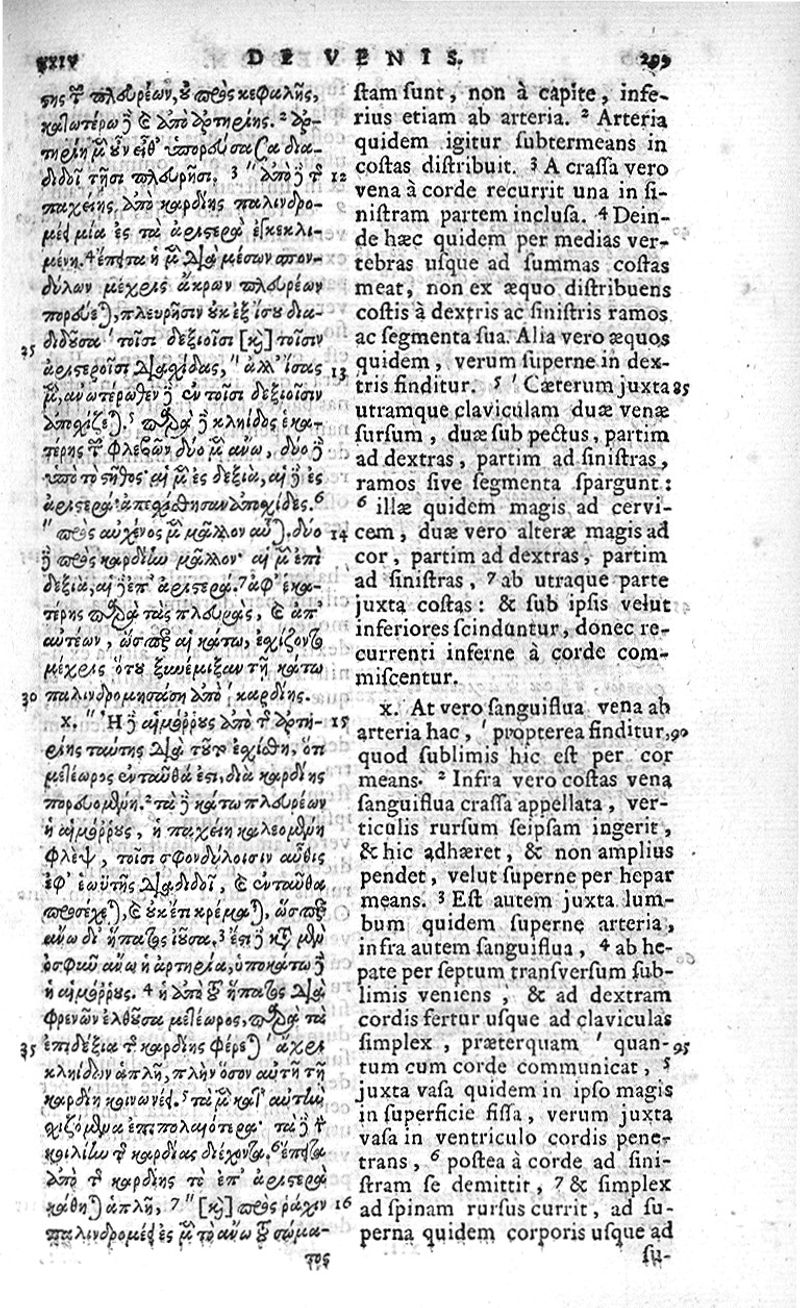 XXIV DE VENIS. 299
της τ πλευρέων, ȣ πρὸς κεφαλῆς,
κατωτέρω ἢ ϗ ἀπὸ ἀρτηρίης. 2 Ἀρ-
διδοῖ τῇσι πλευρῇσι. 3 " ἀπὸ 12
παχείης ἀπὸ καρδίης παλινδρο-
μέει μία ἐς τὰ ἀριστερὰ ἐγκεκλι-
μένη. 4 ἔπειτα ἡ μὲν διὰ μέσων σπον-
δύλων μέχρις ἄκρων πλευρέων
πορεύεται, πλευρῇσιν οὐκ ἐξ ἴσου δια-
διδοῦσα ' τοῖσι δεξιοῖσι [καὶ] τοῖσιν
25 ἀριστεροῖσι διασχίδας, " ἀλλ' ἴσας 13
μὲν, ἀνωτέρωθεν δὲ ἐν τοῖσι δεξιοῖσιν
ἀποσχίζεται. 5 παρὰ δὲ κληῖδος ἑκα-
τέρης τῶν φλεβῶν δύο μὲν ἄνω, δύο δὲ
ὑπὸ τὸ στῆθος· αἱ μὲν ἐς δεξιὰ, αἱ δὲ ἐς
ἀριστερὰ ἀπεσχίσθησαν ἀποσχίδες. 6
" πρὸς αὐχένος μὲν μᾶλλον αὗται. δύο 14
δὲ πρὸς καρδίην μᾶλλον· αἱ μὲν ἐπὶ
δεξιὰ, αἱ δὲ ἐπ' ἀριστερά. 7 ἀφ' ἑκα-
τέρης παρὰ τὰς πλευρὰς, καὶ ἀπ'
αὐτέων, ὥσπερ αἱ κάτω, ἐσχίζοντο
μέχρις ὅτου ξυνέμιξαν τῇ κάτω
30 παλινδρομησάσῃ ἀπὸ ' καρδίης.
X. " Ἡ δὲ αἱμόῤῥους ἀπὸ τῆς ἀρτη- 15
ρίης ταύτης διὰ τοῦτο ἐσχίσθη, ὅτι
μετέωρος ἐνταῦθά ἐστι, διὰ καρδίης
πορευομένη. 2 τὰ δὲ κάτω πλευρέων
ἡ αἱμόῤῥους, ἡ παχείη καλεομένη
φλὲψ, τοῖσι σφονδύλοισιν αὖθις
ἐφ' ἑωϋτῆς διαδιδοῖ, καὶ ἐνταῦθα
προσέχεται, καὶ οὐκ ἔτι κρέμαται, ὥσπερ
ἄνω δι' ἥπατος ἰοῦσα. 3 ἔστι δὲ κατὰ μὲν
ὀσφῦν ἄνω ἡ ἀρτηρία, ὑποκάτω δὲ
ἡ αἱμόῤῥους. 4 ἡ ἀπὸ τοῦ ἥπατος διὰ
φρενῶν ἐλθοῦσα μετέωρος, παρὰ τὰ
35 ἐπιδέξια τῆς καρδίης φέρεται ' ἄχρι
κληίδων ἁπλῆ, πλὴν ὅσον αὐτῇ τῇ
καρδίῃ κοινωνέει. 5 τὰ μὲν κατ' αὐτὴν
σχιζόμενα ἐπιπολαιότερα· τὰ δὲ τὴν
κοιλίην τῆς καρδίας διέχοντα. 6 ἔπειτα
ἀπὸ τῆς καρδίης τὸ ἐπ' ἀριστερὰ
κάθηται ἁπλῆ, 7 " [καὶ] πρὸς ῥάχιν 16
παλινδρομέει ἐς μὲν τὸ ἄνω τοῦ σώμα-
τος
stam sunt, non à capite, infe-
rius etiam ab arteria. 2 Arteria
quidem igitur subtermeans in
costas distribuit. 3 A crassa vero
vena à corde recurrit una in si-
nistram partem inclusa. 4 Dein-
de hæc quidem per medias ver-
tebras usque ad summas costas
meat, non ex æquo distribuens
costis à dextris ac sinistris ramos
ac segmenta sua. Alia vero æquos
quidem, verum superne in dex-
tris finditur. 5 ' Cæterum juxta 85
utramque claviculam duæ venæ
sursum, duæ sub pectus, partim
ad dextras, partim ad sinistras,
ramos sive segmenta spargunt:
6 illæ quidem magis ad cervi-
cem, duæ vero alteræ magis ad
cor, partim ad dextras, partim
ad sinistras, 7 ab utraque parte
juxta costas: & sub ipsis velut
inferiores scinduntur, donec re-
currenti inferne à corde com-
miscentur.
X. At vero sanguiflua vena ab
arteria hac, ' propterea finditur, 90
quod sublimis hic est per cor
means. 2 Infra vero costas vena
sanguiflua crassa appellata, ver-
ticulis rursum seipsam ingerit,
& hic adhæret, & non amplius
pendet, velut superne per hepar
means. 3 Est autem juxta lum-
bum quidem superne arteria,
infra autem sanguiflua, 4 ab he-
pate per septum transversum sub-
limis veniens, & ad dextram
cordis fertur usque ad claviculas
simplex, præterquam ' quan- 95
tum cum corde communicat, 5
juxta vasa quidem in ipso magis
in superficie fissa, verum juxta
vasa in ventriculo cordis pene-
trans, 6 postea à corde ad sini-
stram se demittit, 7 & simplex
ad spinam rursus currit, ad su-
perna quidem corporis usque ad
su-